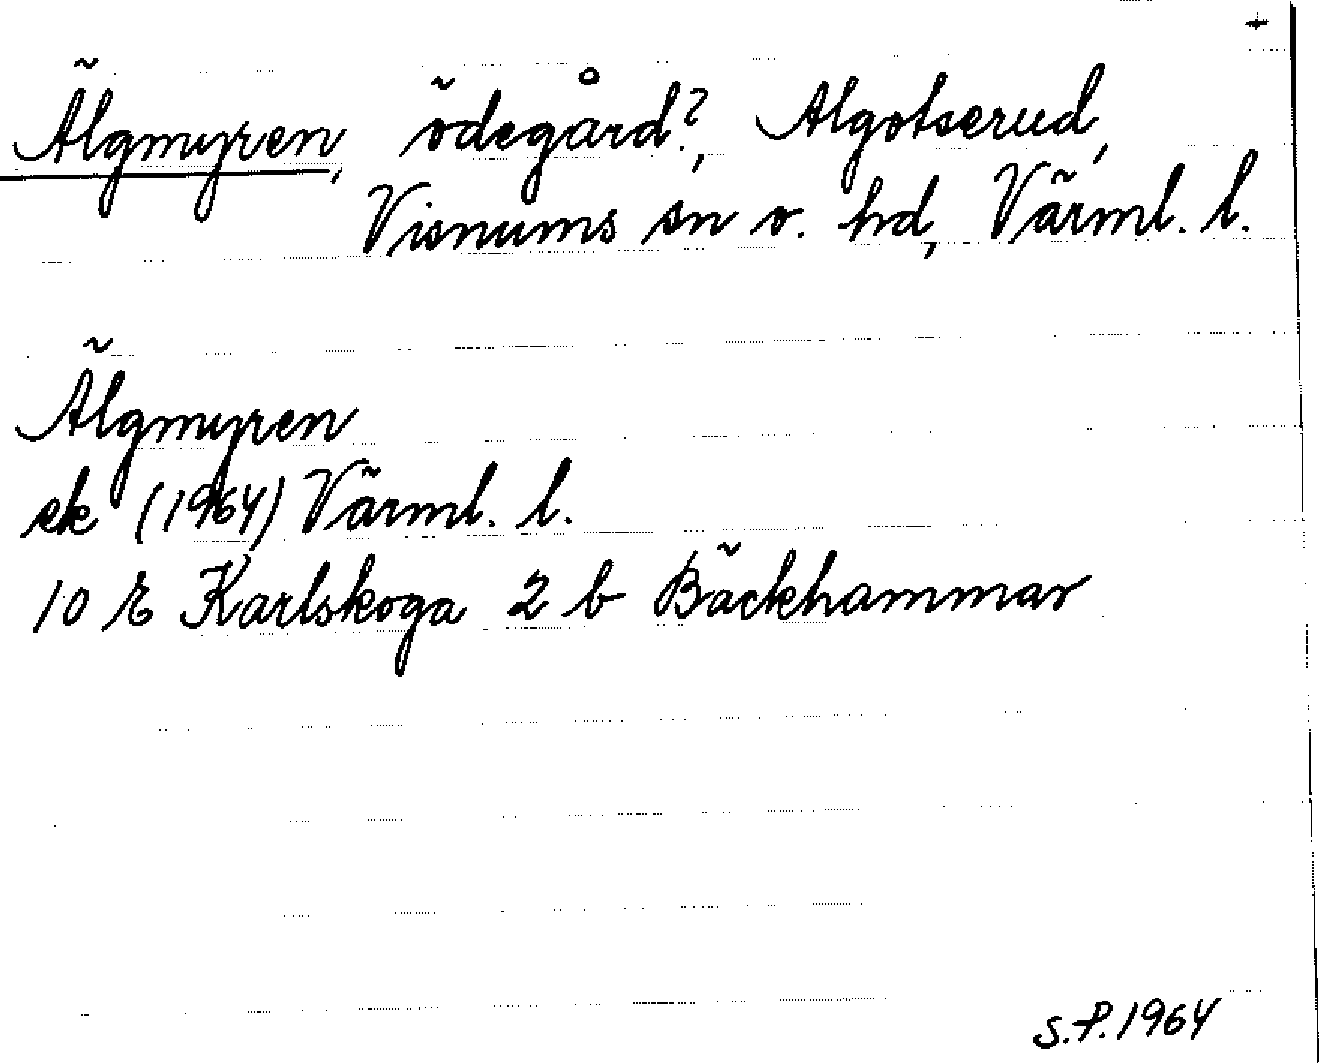 +
Älgmyren, ödegård?, Algotserud,
Visnums sn o. hd, Värml. l.
Älgmyren
ek (1964) Värml. l.
10 E Karlskoga 2 b Bäckhammar
S.P. 1964